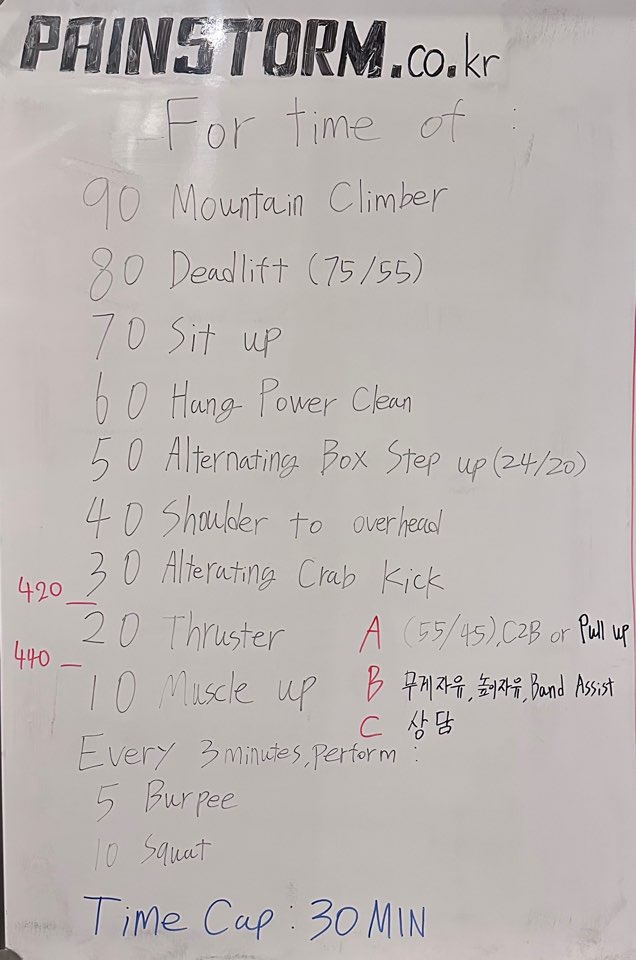 PAINSTORM.co.kr
For time of :
90 Mountain Climber
80 Deadlift (75/55)
70 Sit up
60 Hang Power Clean
50 Alternating Box Step up (24/20)
40 Shoulder to overhead
30 Alterating Crab Kick
420
20 Thruster A (55/45), C2B or Pull up
440
10 Muscle up B 무게자유, 높이자유, Band Assist
C 상담
Every 3 minutes, perform :
5 Burpee
10 Squat
Time Cap : 30 MIN